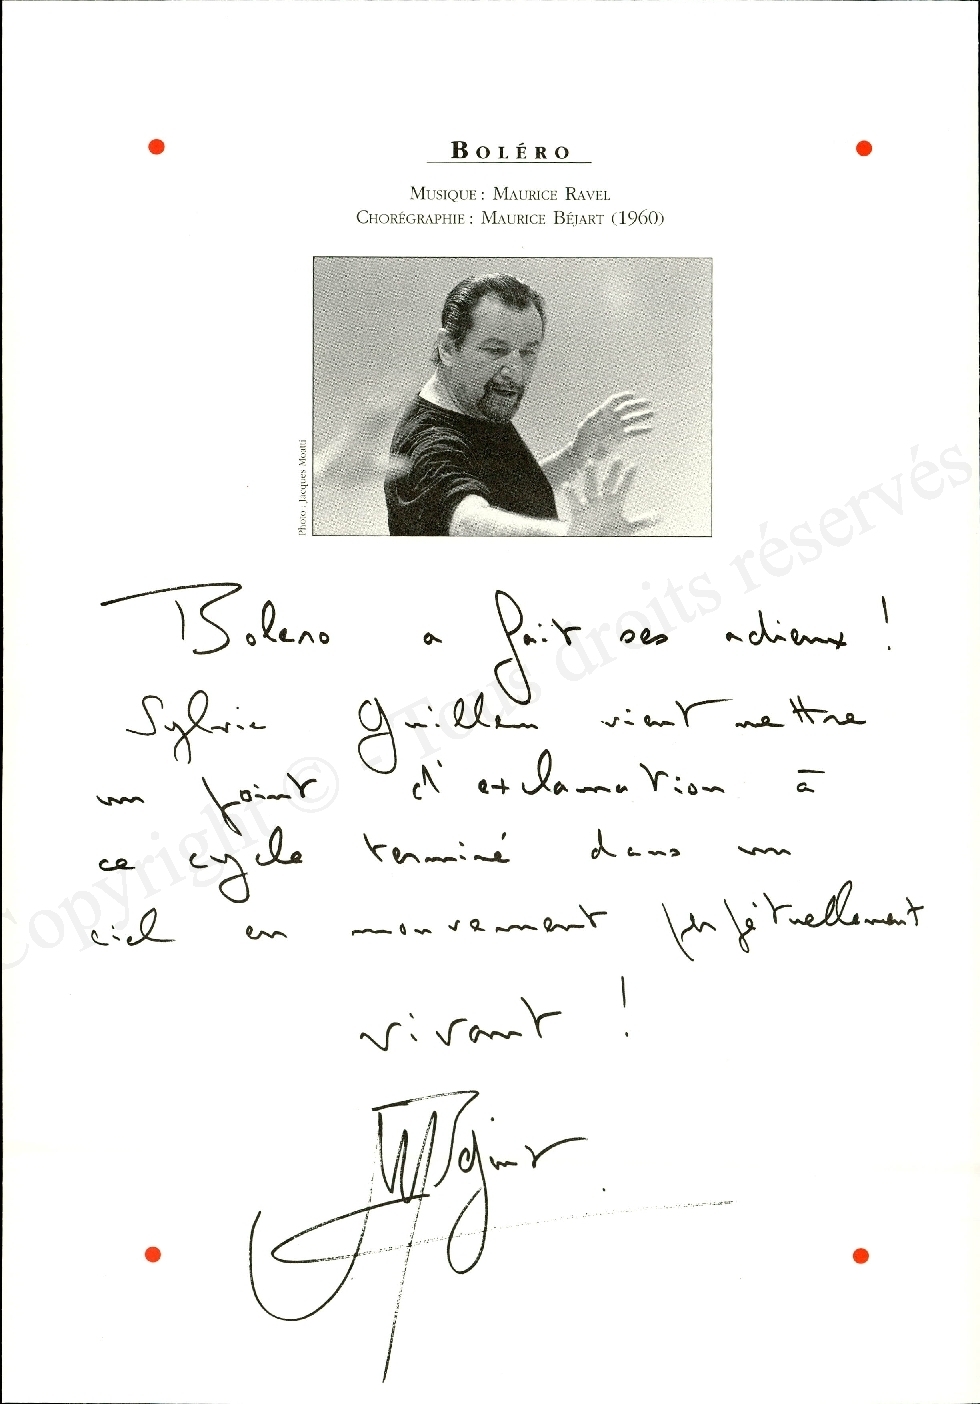 BOLÉRO
MUSIQUE : MAURICE RAVEL
CHORÉGRAPHIE : MAURICE BÉJART (1960)
Photo : Jacques Moatti
Bolero a fait ses adieux !
Sylvie Guillem vient mettre
un point d'exclamation à
ce cycle terminé dans un
ciel en mouvement perpétuellement
vivant !
MBéjart
Copyright © - Tous droits réservés